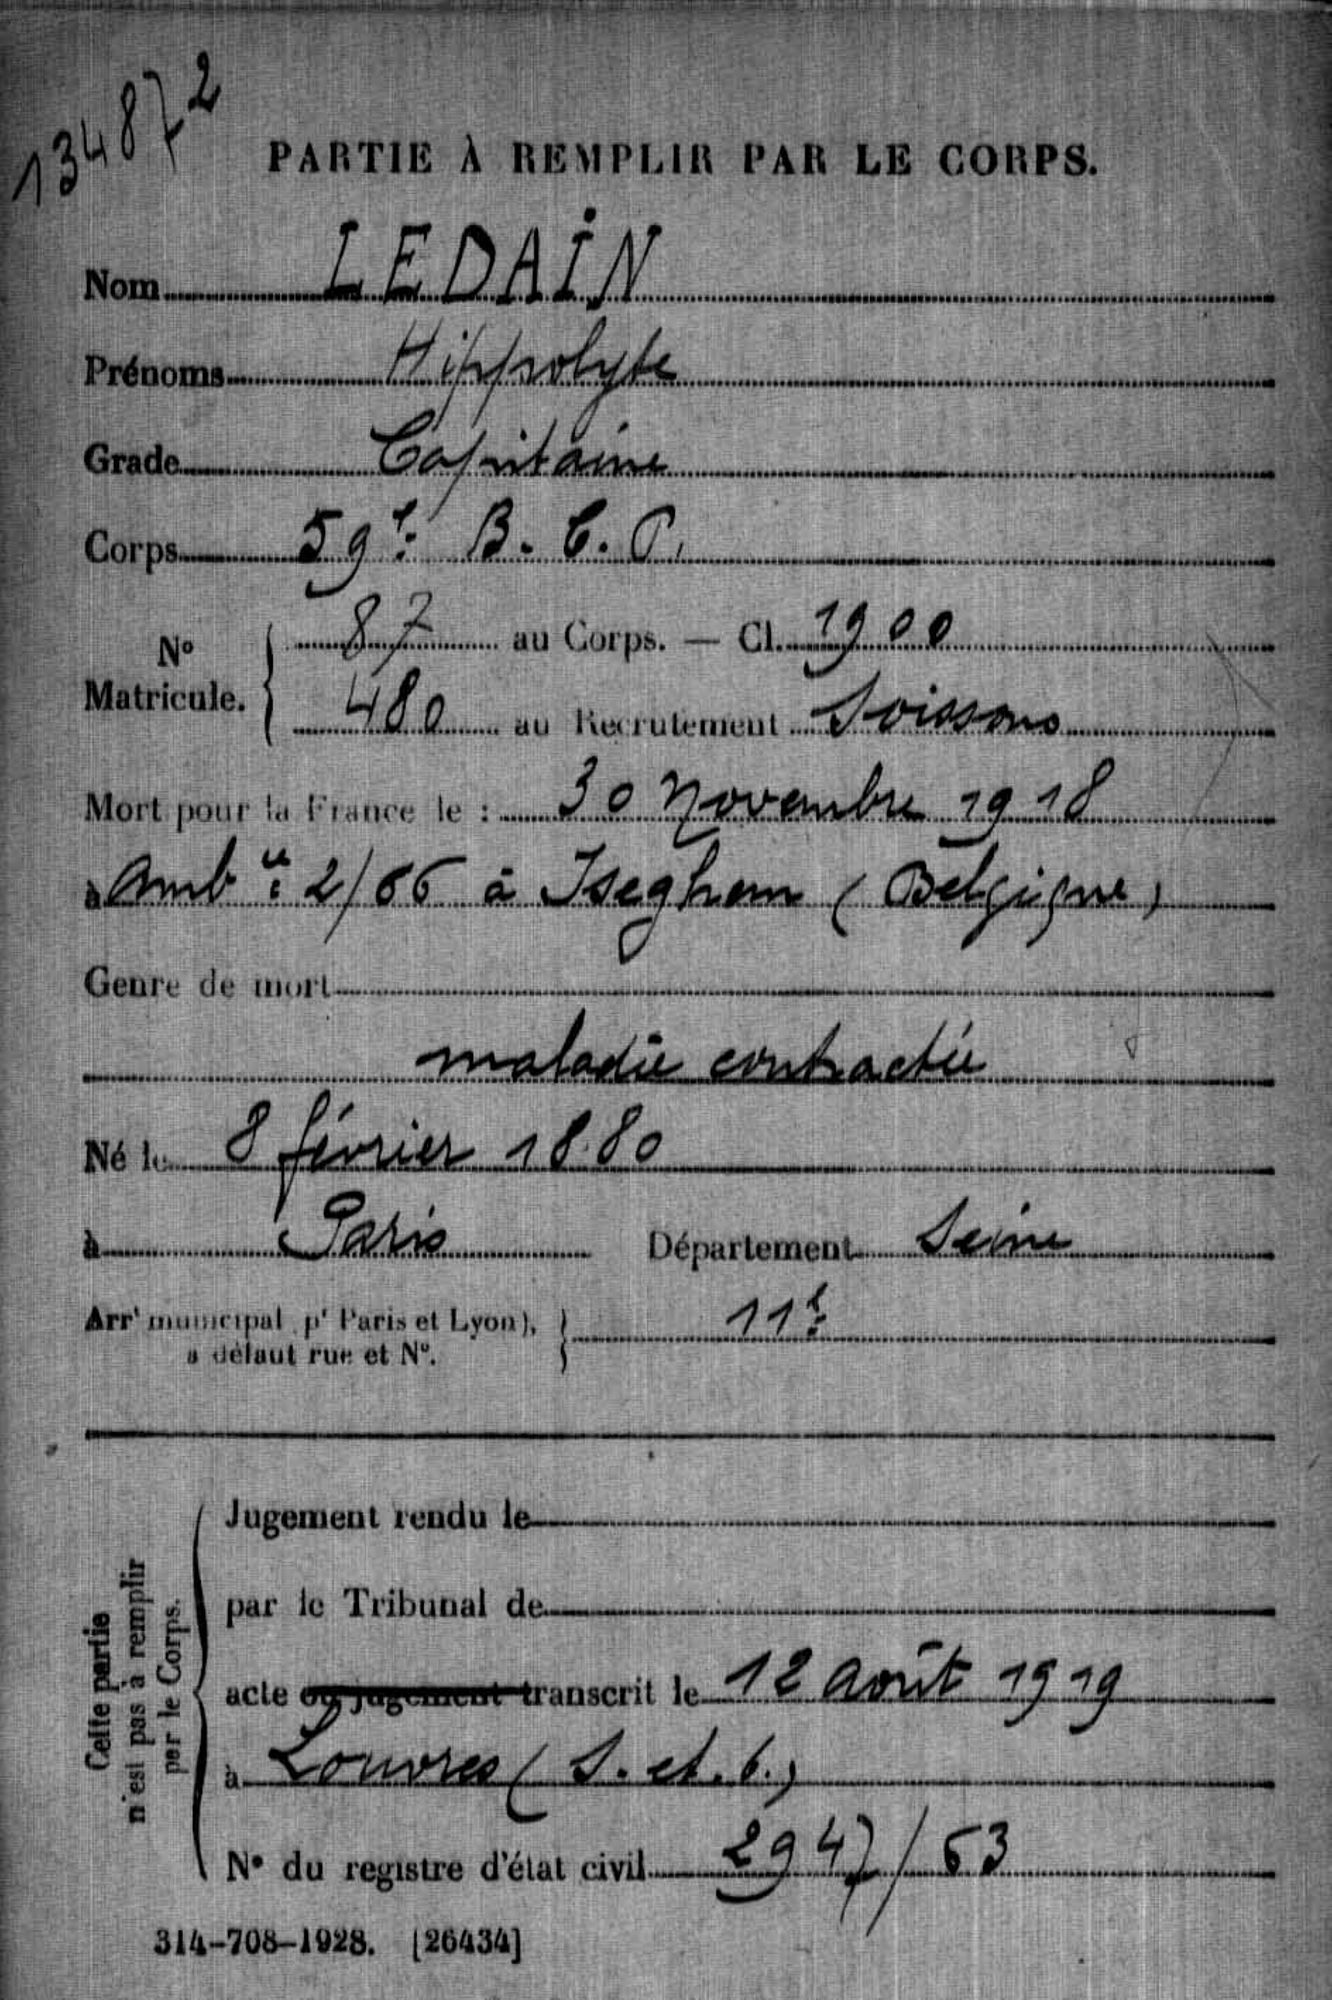 134872
PARTIE À REMPLIR PAR LE CORPS.
Nom LEDAIN
Prénoms Hippolyte
Grade Capitaine
Corps 59e B. C. P.
N° Matricule. 87 au Corps. — Cl. 1900
480 au Recrutement Soissons
Mort pour la France le : 30 Novembre 1918
à Ambce 2/66 à Iseghem (Belgique)
Genre de mort
maladie contractée
Né le 8 février 1880
à Paris Département Seine
Arrt municipal (pr Paris et Lyon), à défaut rue et N°. 11e
Jugement rendu le
par le Tribunal de
acte ou jugement transcrit le 12 août 1919
à Louvres (S. et. O.)
N° du registre d'état civil 2947/63
Cette partie
n'est pas à remplir
par le Corps.
314-708-1928. [26434]